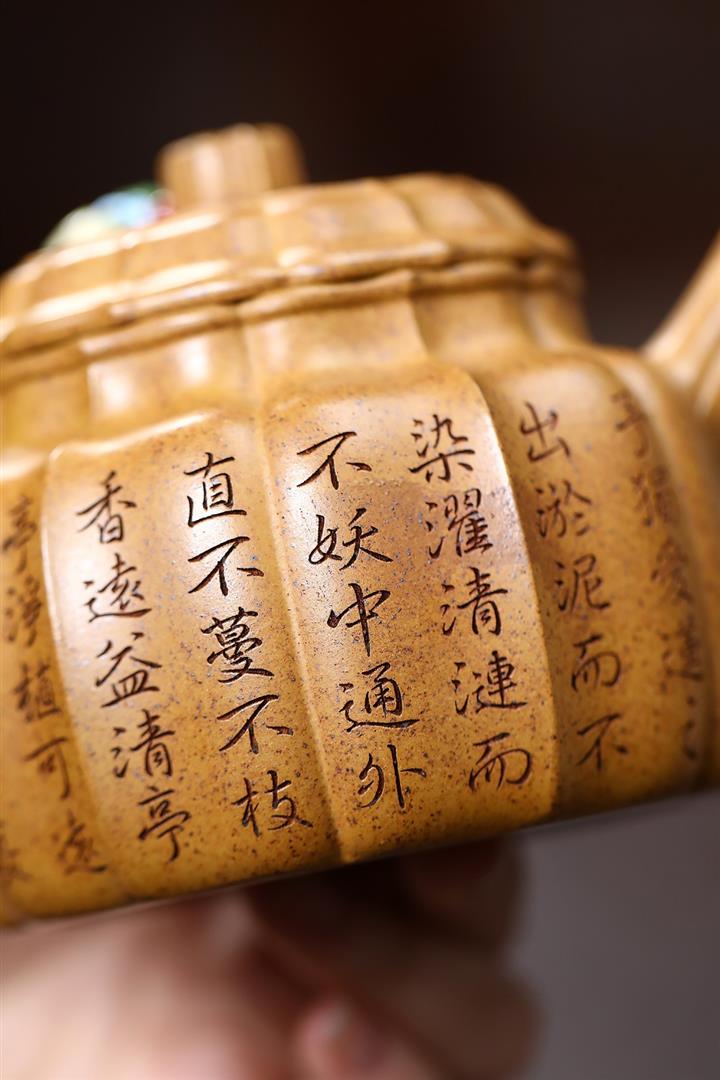 予獨愛蓮之
出淤泥而不
染濯清漣而
不妖中通外
直不蔓不枝
香遠益清亭
亭淨植可遠